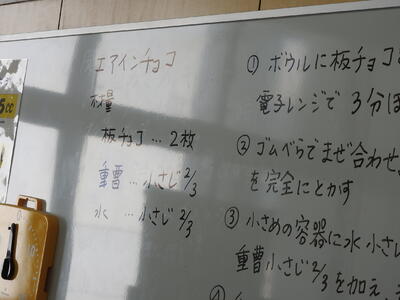 エアインチョコ
材量
板チョコ…2枚
重曹…小さじ2/3
水…小さじ2/3
① ボウルに板チョコ
電子レンジで3分ほ
② ゴムべらでまぜ合わせ
を完全にとかす
③ 小さめの容器に水小さじ
重曹小さじ2/3を加え
5cc